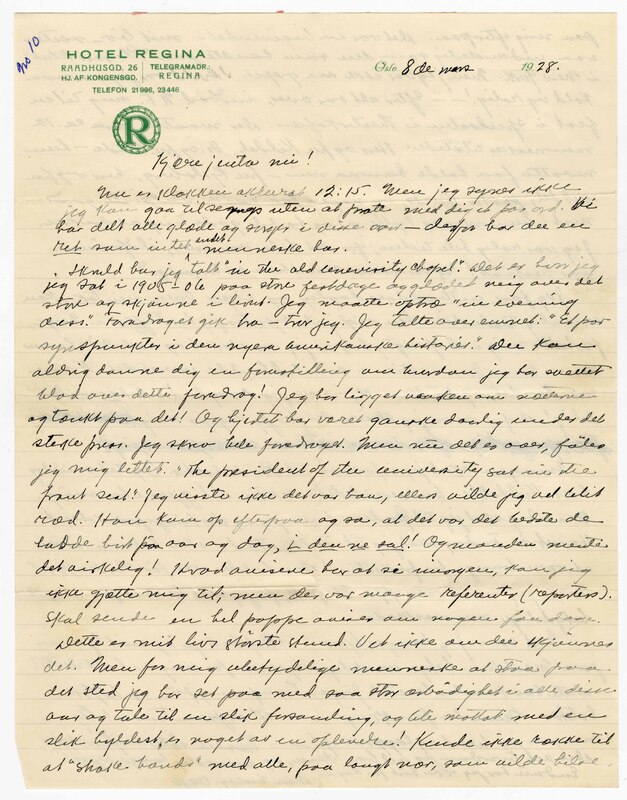 No 10
HOTEL REGINA
RAADHUSGD. 26
HJ. AF KONGENSGD.
TELEGRAMADR.:
REGINA
TELEFON 21996, 23446
R
Oslo 8de mars 1928.
Kjære jenta mi!
Nu er klokken akkurat 12:15. Men jeg synes ikke
jeg kan gaa tilsengs uten at prate med dig et par ord. Vi
har delt alle glæde og sorger i disse aar – derfor har du en
ret som intet andet menneske har.
Ikveld har jeg talt "in the old university chapel". Det er hvor jeg
jeg sat i 1905-06 paa store festdage og glædet meig over det
store og skjønne i livet. Jeg maatte optræ "in evening
dress." Foredraget gik bra – tror jeg. Jeg talte over emnet: "Et par
synspunkter i den nyere amerikanske historie." Du kan
aldrig danne dig en forestilling om hvordan jeg har svættet
blod over dette foredrag! Jeg har ligget vaaken om nætterne
og tænkt paa det! Og hjertet har været ganske daarlig under det
sterke pres. Jeg skrev hele foredraget. Men nu det er over, føles
jeg mig lettet. "The president of the university sat in the
front seat." Jeg visste ikke det var han, ellers vilde jeg vel blit
ræd. Han kom op efterpaa og sa, at det var det bedste de
hadde hørt paa aar og dag, i denne sal! Og manden mente
det virkelig! Hvad aviserne har at si imorgen, kan jeg
ikke gjætte mig til, men der var mange referenter (reporters).
Skal sende en hel pappe aviser om nogen faa dage.
Dette er mit livs største stund. Vet ikke om du skjønner
det. Men for mig ubetydelige menneske at staa paa
det sted jeg har set paa med saa stor ærbødighet i alle disse
aar og tale til en slik forsamling, og bli mottat med en
slik hyldest, er noget av en oplevelse! Kunde ikke række til
at "shake hands" med alle, paa langt nær, som vilde hilse